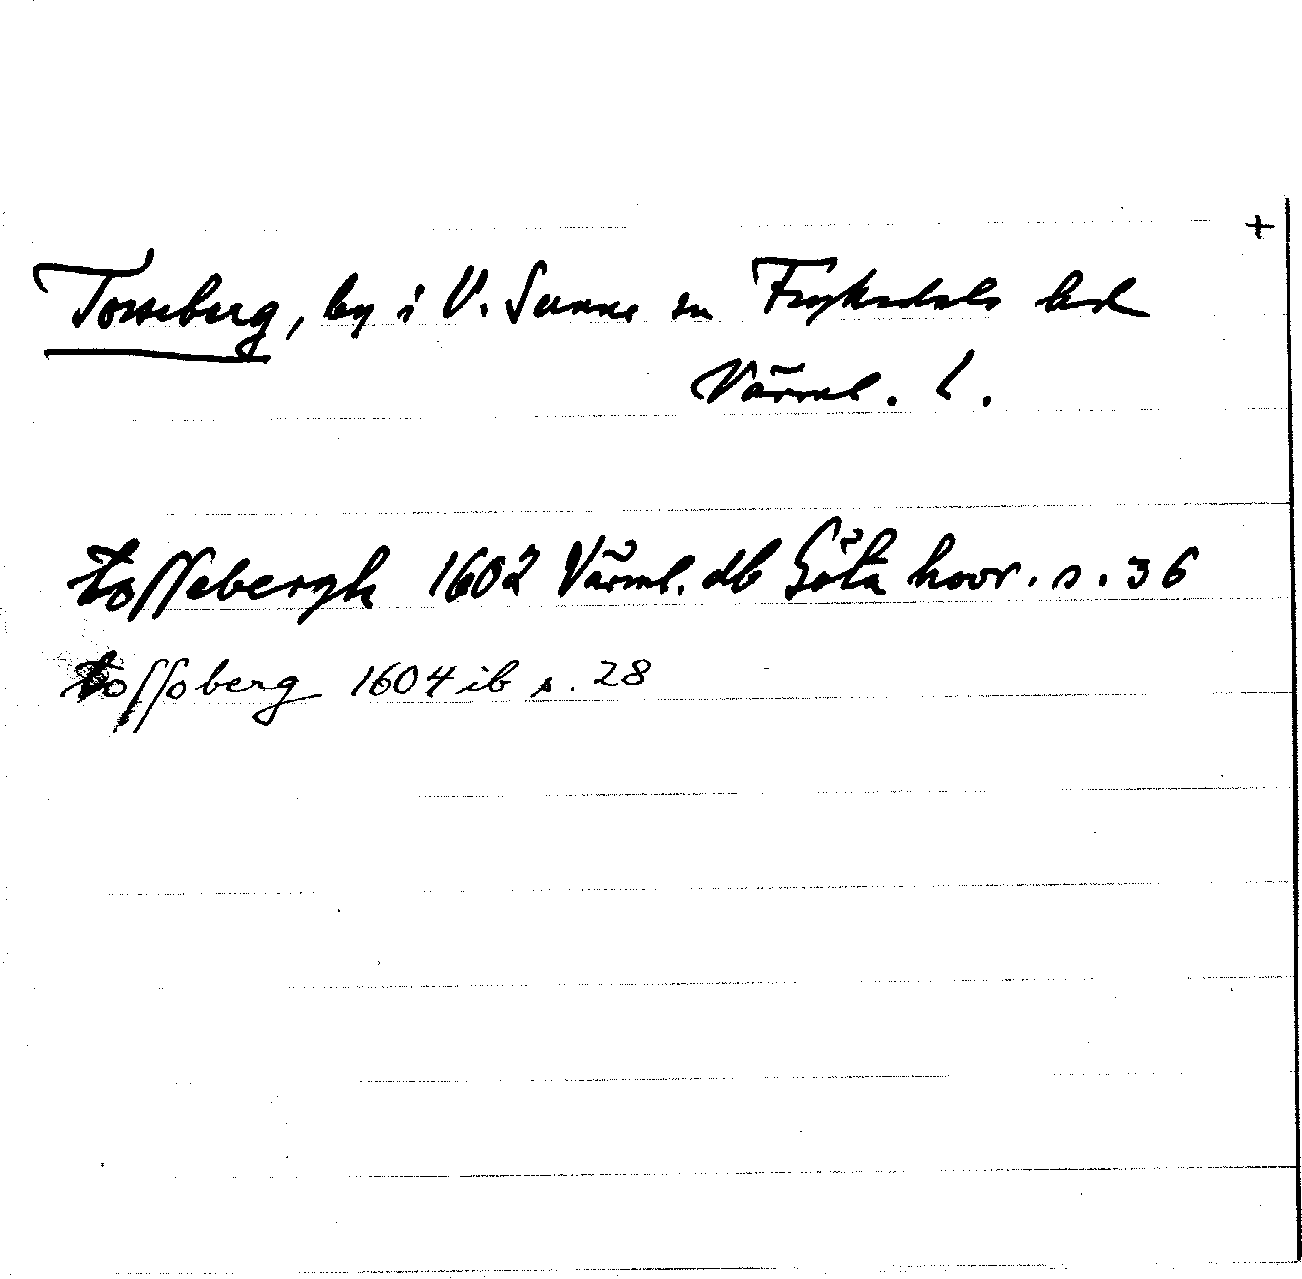 +
Tosseberg, by i V. Sunne sn Fryksdals hd
Värml. l.
tossebergh 1602 Värml. db Göta hovr. s. 36
tossoberg 1604 ib s. 28